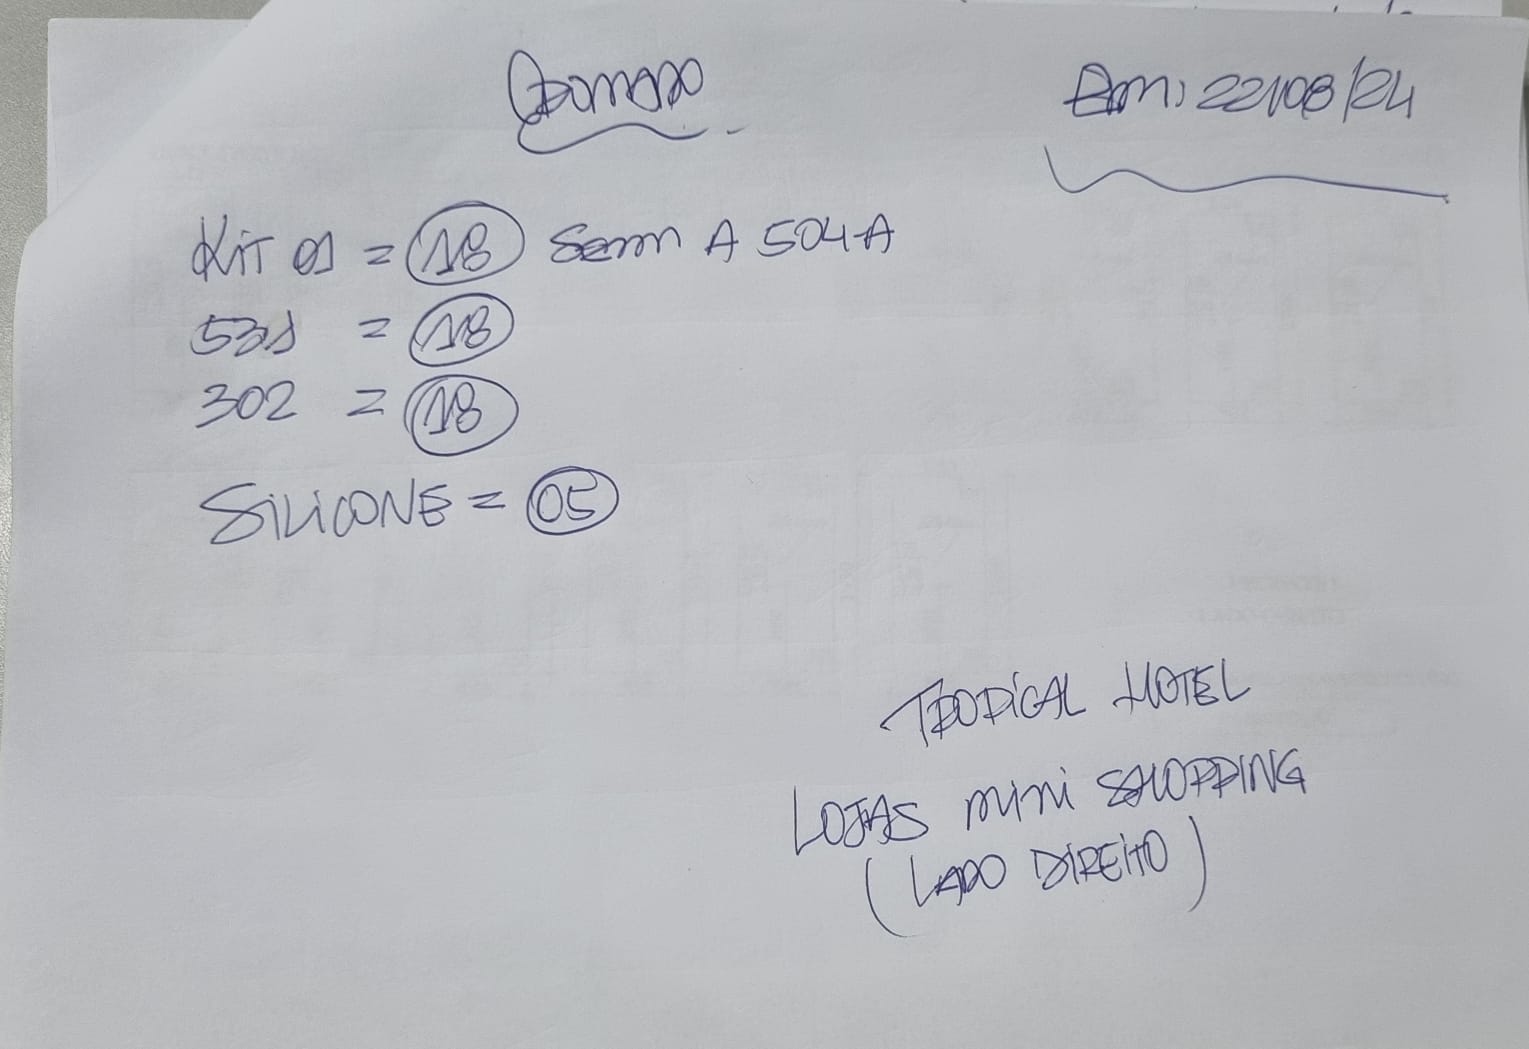 Em: 22/08/24
Kit 01 = 18 Sem A 504A
531 = 18
302 = 18
SiLiCONE = 05
TROPiCAL HOTEL
LOJAS mini SHOPPING
(LADO DIREITO)